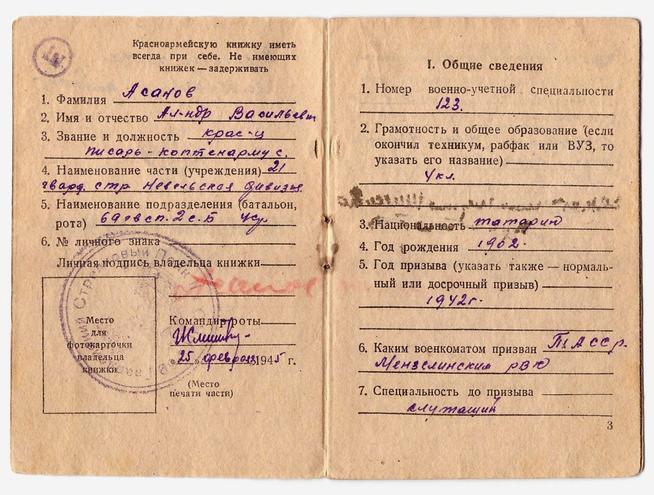 Красноармейскую книжку иметь
всегда при себе. Не имеющих
книжек — задерживать
1. Фамилия Асанов
2. Имя и отчество Ал-ндр Васильевич
3. Звание и должность крас-ц
писарь-каптенармус.
4. Наименование части (учреждения) 21
гвард. стр. Невельская дивизия
5. Наименование подразделения (батальон,
рота)
6. № личного знака
Личная подпись владельца книжки
Место
для
фотокарточки
владельца
книжки
Командир роты
„25" февраля 1945 г.
(Место
печати части)
I. Общие сведения
1. Номер военно-учетной специальности
123.
2. Грамотность и общее образование (если
окончил техникум, рабфак или ВУЗ, то
указать его название)
3. Национальность татарин
4. Год рождения 1902.
5. Год призыва (указать также — нормаль-
ный или досрочный призыв)
1942г.
6. Каким военкоматом призван ТАССР.
Мензелинский РВК
7. Специальность до призыва
служащий
3